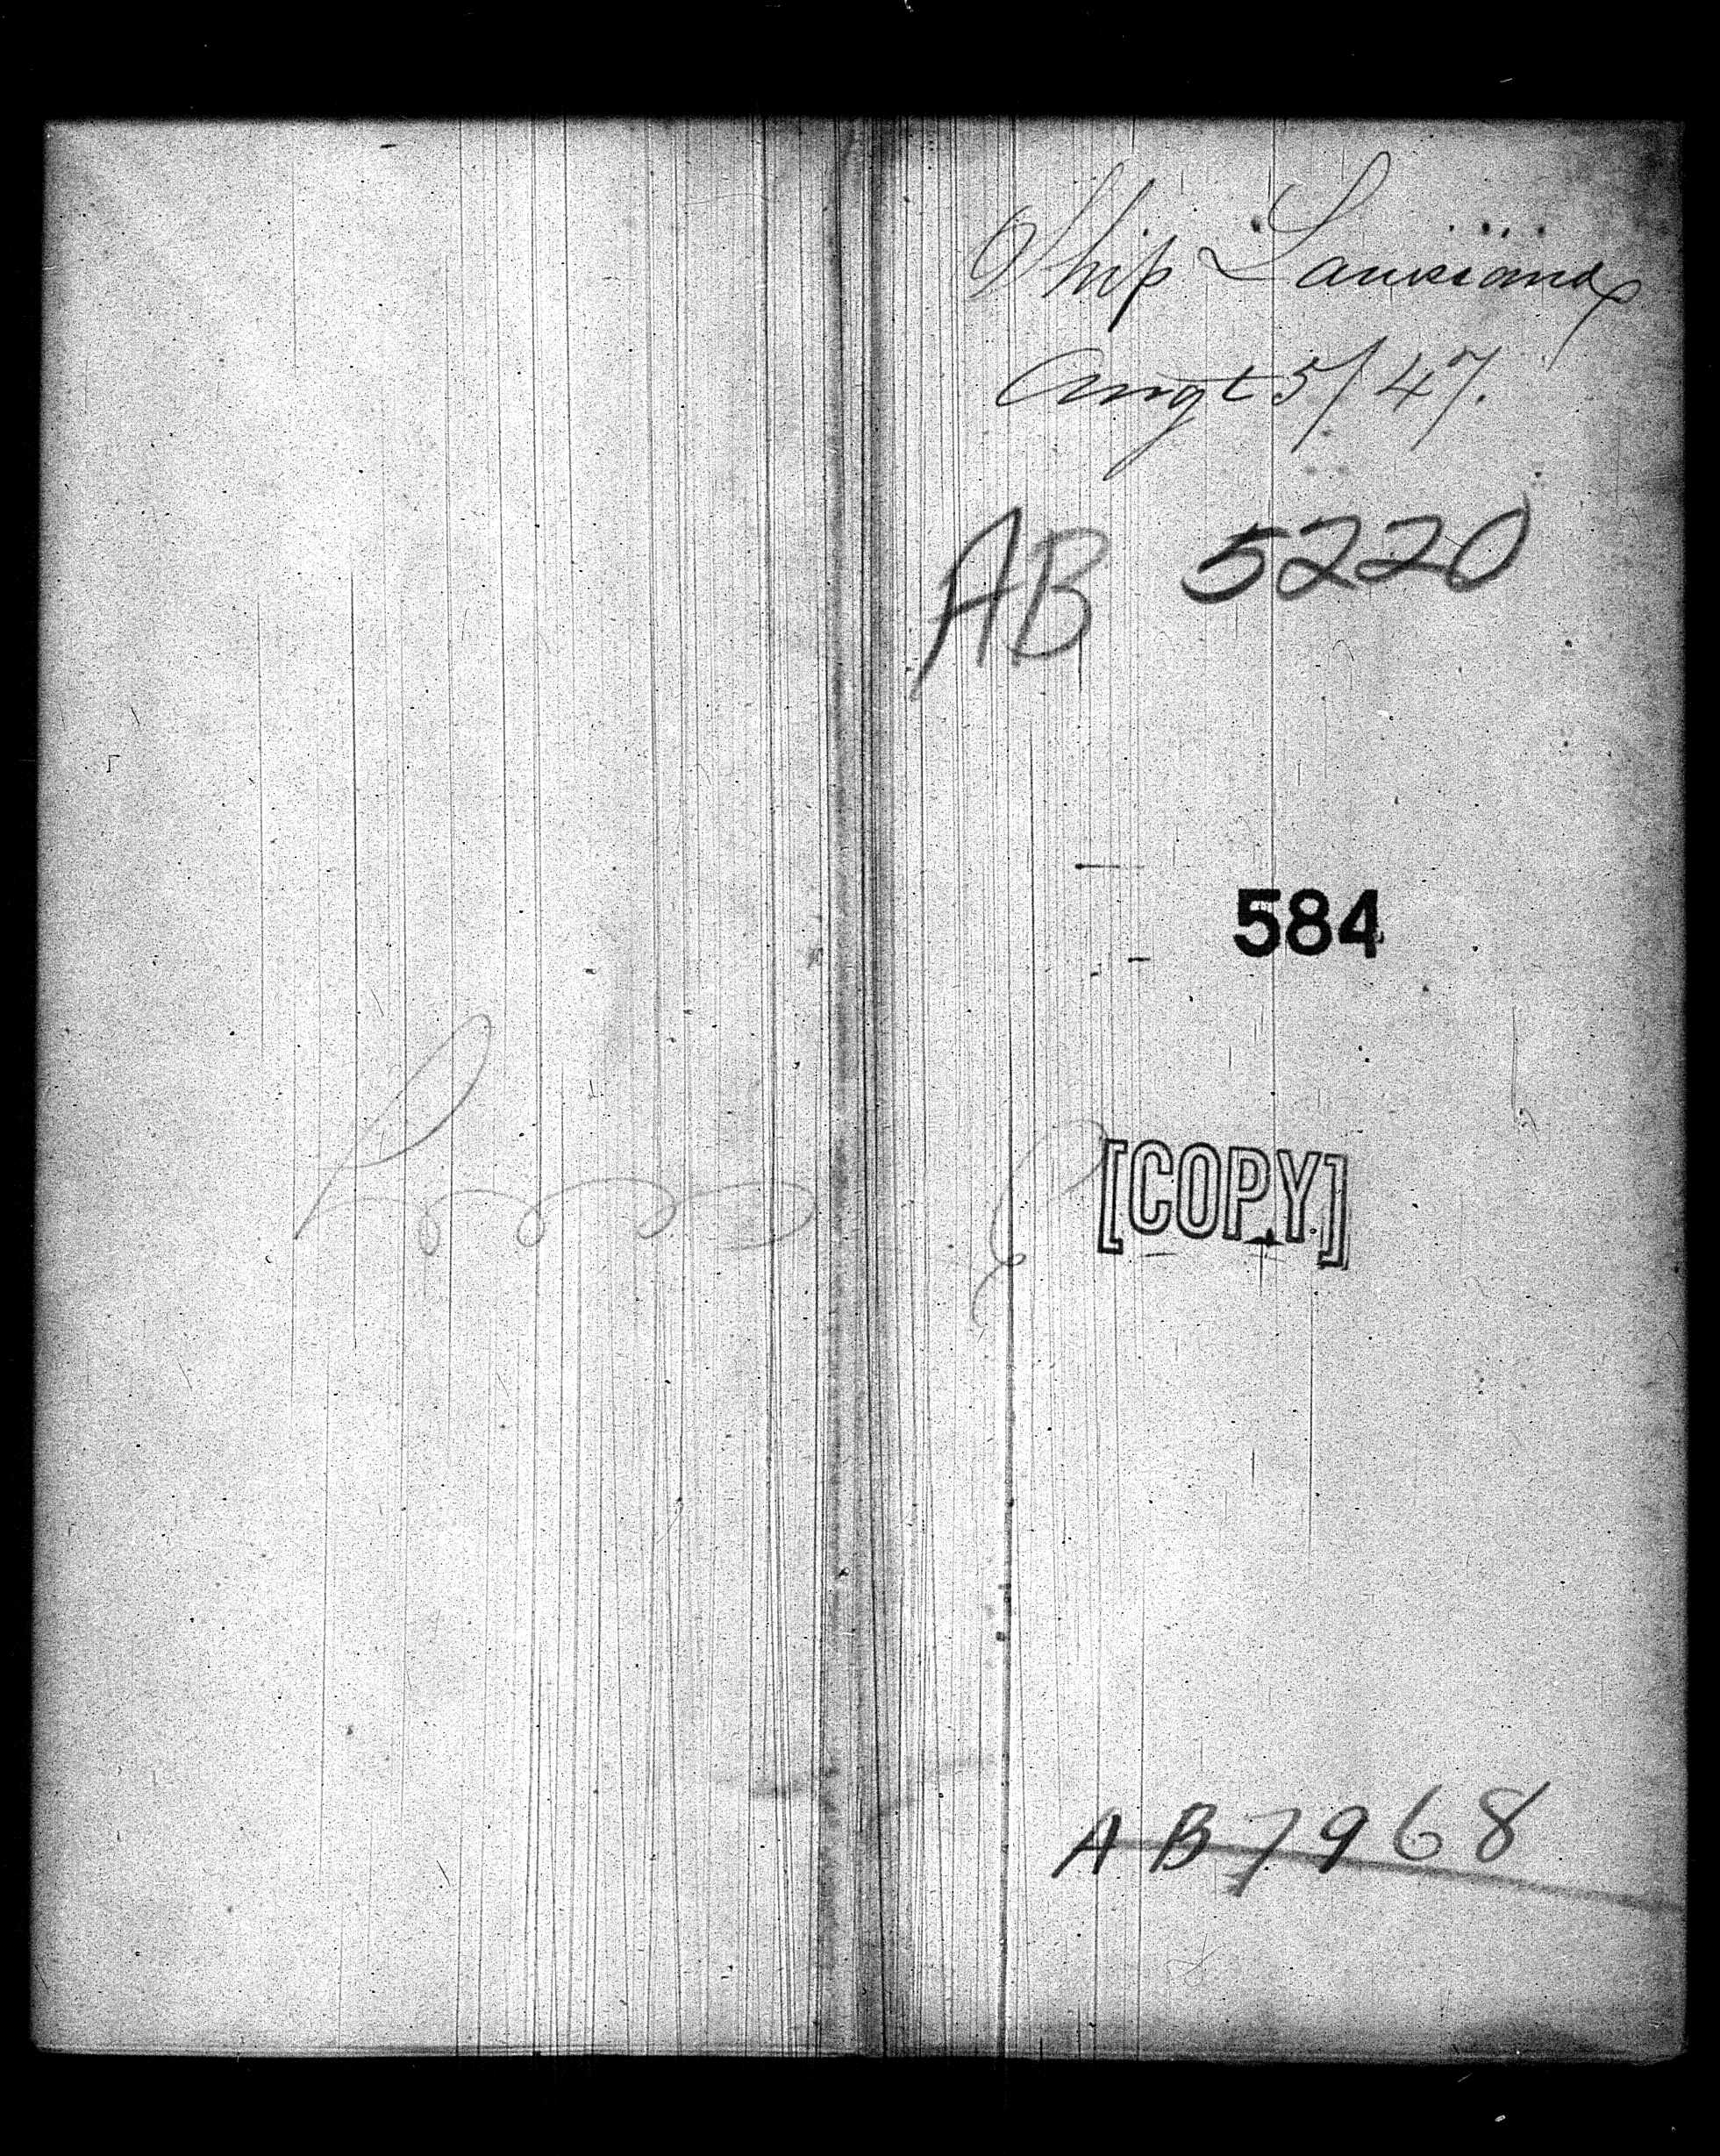 Ship Lousiana
Augt 5/47.
AB 5220
584
[COPY]
AB 7968